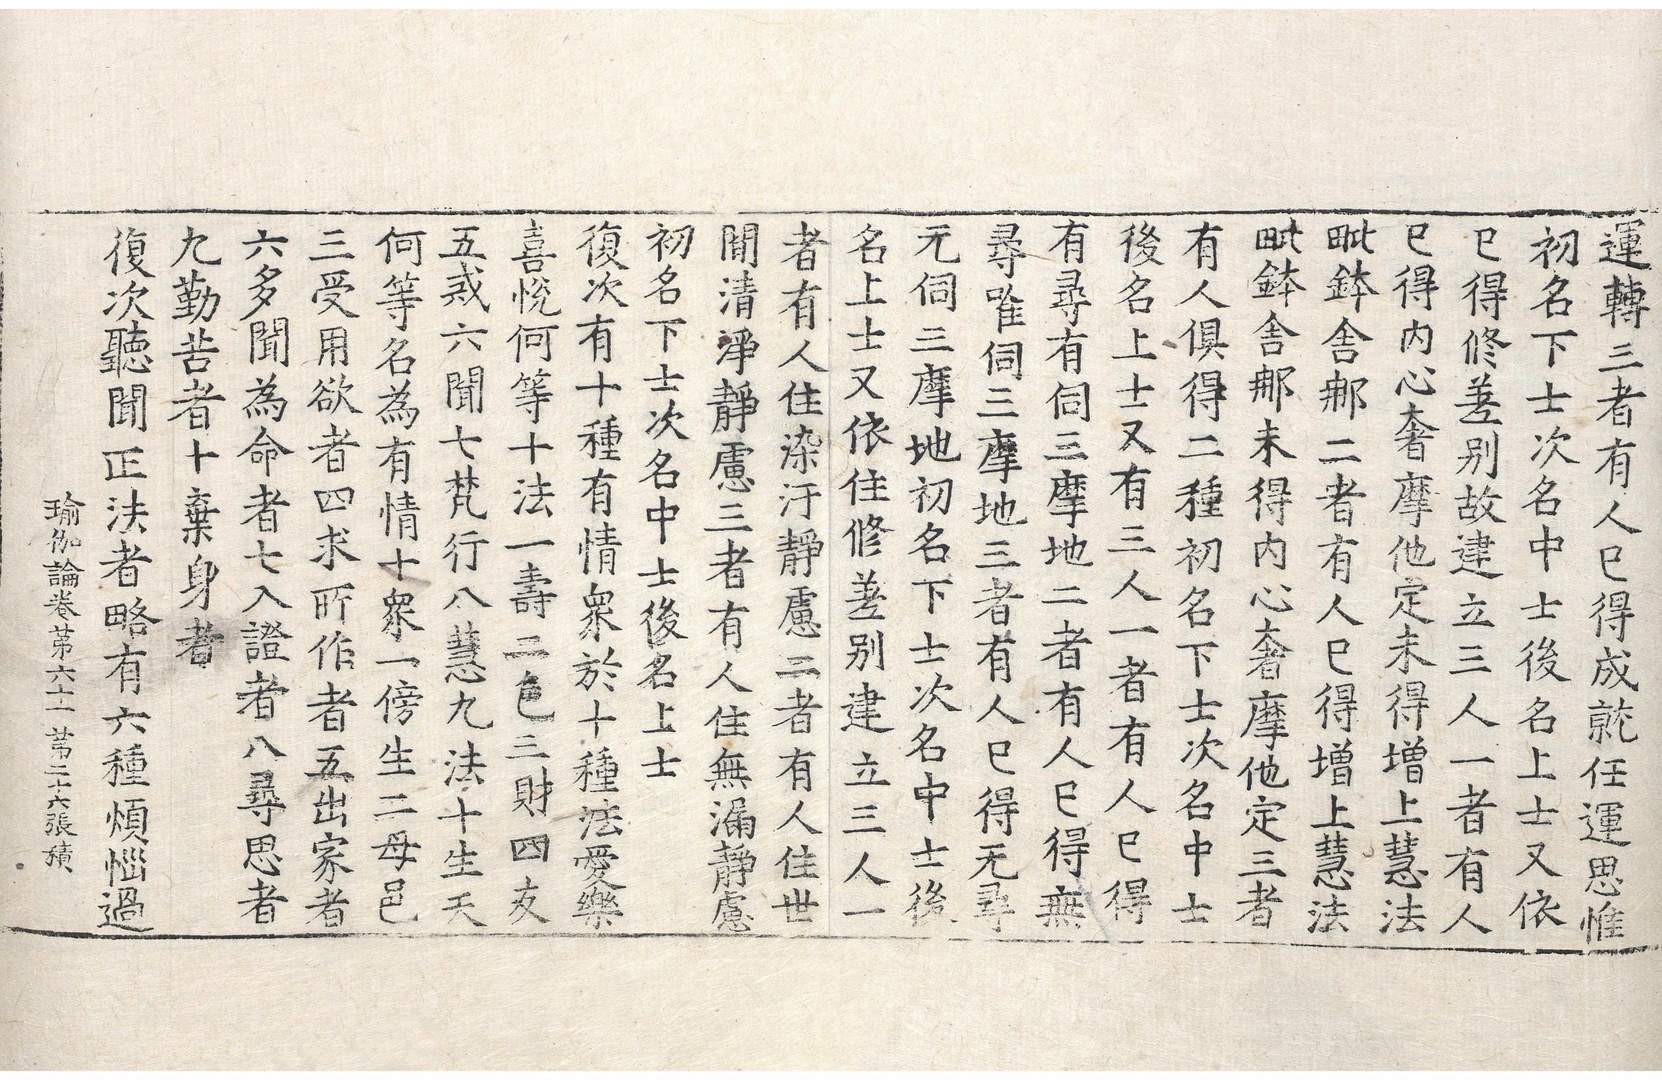 運轉三者有人已得成就任運思惟
初名下士次名中士後名上士又依
已得修差别故建立三人一者有人
已得内心奢摩他定未得增上慧法
毗鉢舍那二者有人已得增上慧法
毗鉢舍那未得内心奢摩他定三者
有人俱得二種初名下士次名中士
後名上士又有三人一者有人已得
有尋有伺三摩地二者有人已得無
尋唯伺三摩地三者有人已得无尋
无伺三摩地初名下士次名中士後
名上士又依住修差别建立三人一
者有人住染汙靜慮二者有人住世
間清淨靜慮三者有人住無漏靜慮
初名下士次名中士後名上士
復次有十種有情衆於十種法愛樂
喜悅何等十法一壽二色三財四友
五戒六聞七梵行八慧九法十生天
何等名為有情十衆一傍生二母邑
三受用欲者四求所作者五出家者
六多聞為命者七入證者八尋思者
九勤苦者十棄身者
復次聽聞正法者略有六種煩惱過
瑜伽論卷苐六十一 苐二十六張